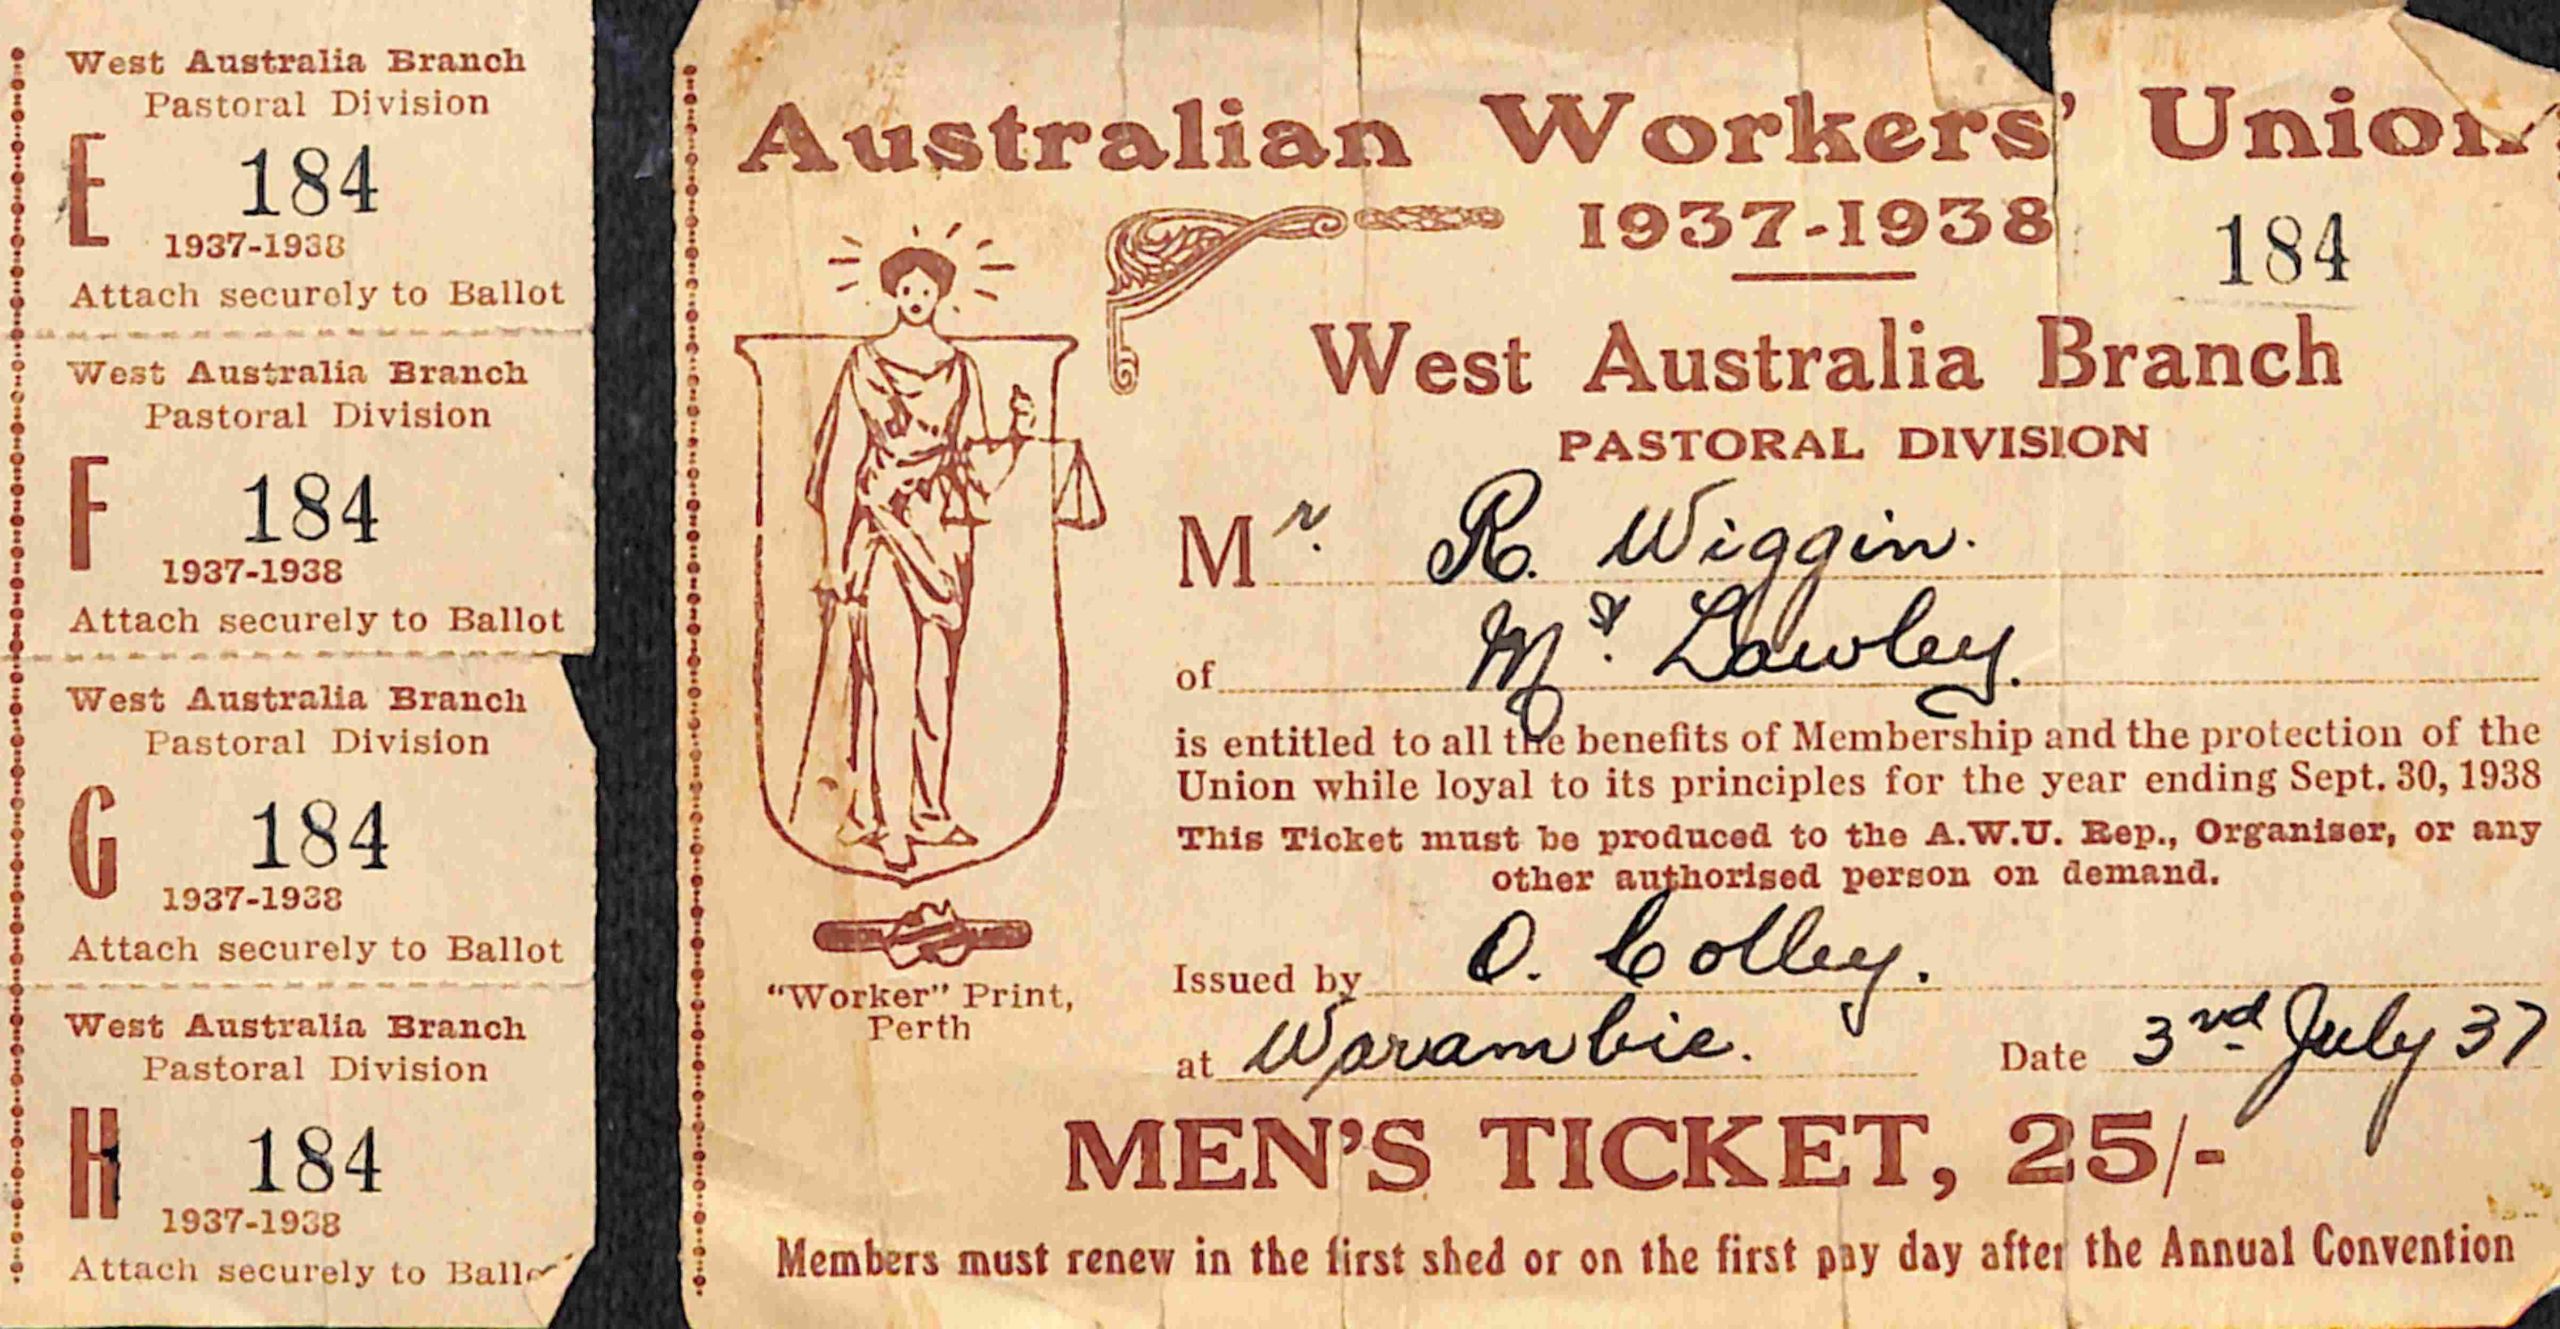 West Australia Branch
Pastoral Division
E 184
1937-1938
Attach securely to Ballot
West Australia Branch
Pastoral Division
F 184
1937-1938
Attach securely to Ballot
West Australia Branch
Pastoral Division
G 184
1937-1938
Attach securely to Ballot
West Australia Branch
Pastoral Division
H 184
1937-1938
Attach securely to Ballo
Australian Workers' Union
1937-1938
184
West Australia Branch
PASTORAL DIVISION
Mr. R. Wiggin.
of Mt. Lawley.
is entitled to all the benefits of Membership and the protection of the
Union while loyal to its principles for the year ending Sept. 30, 1938
This Ticket must be produced to the A.W.U. Rep., Organiser, or any
other authorised person on demand.
Issued by O. Colley.
"Worker" Print,
Perth
at Warambie. Date 3rd July 37
MEN'S TICKET, 25/-
Members must renew in the first shed or on the first pay day after the Annual Convention